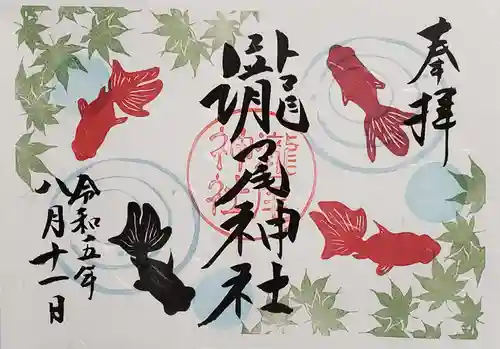 奉拝
瀧尾神社
瀧尾
神社
令和五年
八月十一日